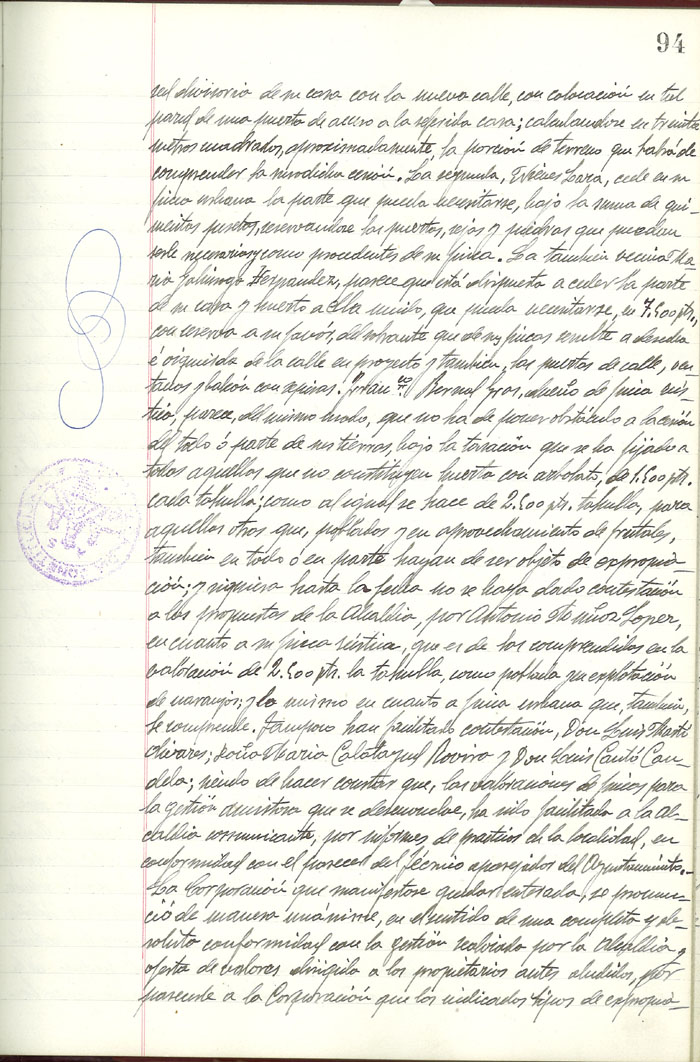 94
red divisoria de su casa con la nueva calle, con colocación en tal
pared de una puerta de acceso a la referida casa; calculandose en treinta
metros cuadrados, aproximadamente, la porción de terreno que habrá de
comprender la susodicha cesión. La segunda, Nieves Lara, cede en su
finca urbana la parte que pueda necesitarse, bajo la suma de qui
nientas pesetas, reservandose las puertas, rejas y piedras que puedan
serle necesarios y como procedentes de su finca. La tambien vecina Ma
ria Hernandez, parece que está dispuesta a ceder la parte
de su casa y huerto a ella unido, que pueda necesitarse, en 7.500 pts.
con reserva a su favor, del sobrante que de sus fincas resulte a derecha
é izquierda de la calle en proyecto y tambien, las puertas de calle, ven
tanas y balcón con repisas. Franco Bernal Gras, dueño de finca rús
tica, parece, del mismo modo, que no ha de poner obstáculo a la cesión
del todo ó parte de sus tierras, bajo la tasación que se ha fijado a
todos aquellos que no constituyen huerta con arbolado, de 1.500 pts.
cada tahulla; como al igual se hace de 2.500 pts. tahulla, para
aquellos otros que, poblados y en aprovechamiento de frutales,
tambien en todo o en parte hayan de ser objeto de expropia-
ción; y siquiera hasta la fecha no se haya dado contestación
a las propuestas de la Alcaldia, por Antonio Muñoz Lopez,
en cuanto a su finca rústica, que es de las comprendidas en la
valoración de 2.500 pts. la tahulla, como poblada en explotación
de naranjos; y lo mismo en cuanto a finca urbana que, tambien,
se comprende. Tampoco han facilitado contestación, Don Luis Martí
Olivares; Doña Maria Calatayud Rovira y Don Luis Cantó Can
dela; siendo de hacer constar que, las valoraciones de fincas para
la gestión que se desenvuelve, ha sido facilitada a la Al-
caldia comunicante, por informes de practicos de la localidad, en
conformidad con el parecer del Técnico aparejador del Ayuntamiento.-
La Corporación que manifestose quedar enterada, se pronun-
ció de manera unánime, en el sentido de una completa y ab-
soluta conformidad con la gestión realizada por la Alcaldia y
oferta de valores dirigida a los propietarios antes aludidos, por
parecerle a la Corporación que los indicados tipos de expropia-